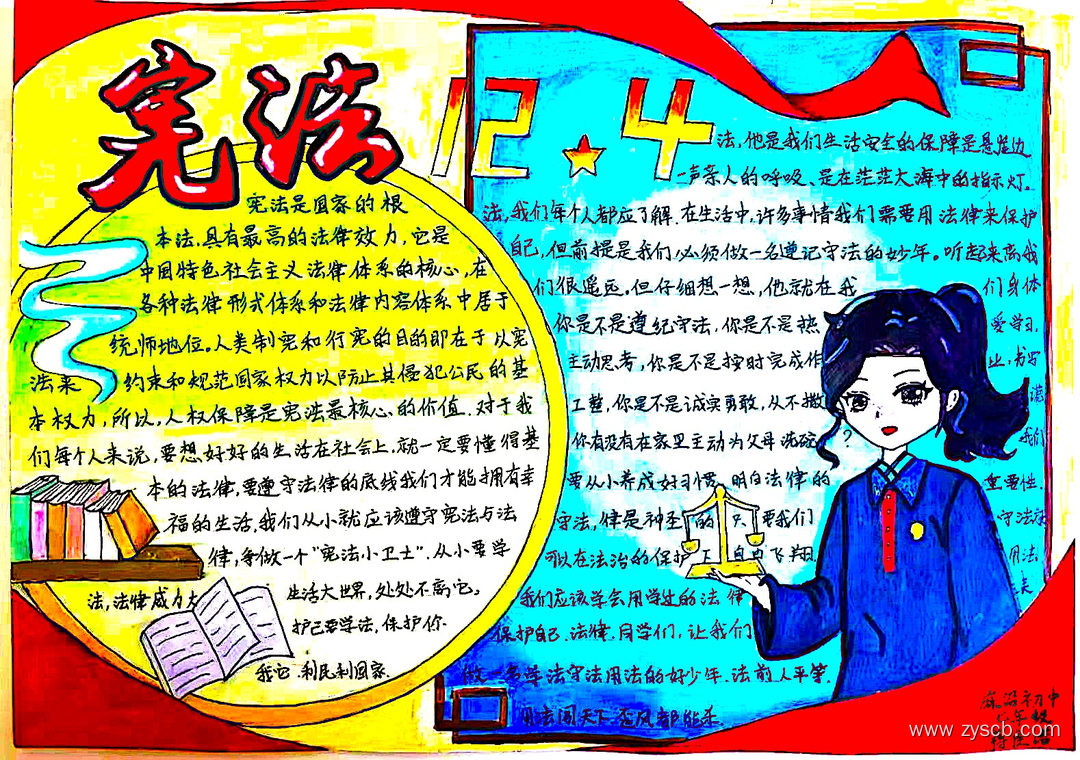 宪法
12.4
宪法是国家的根
本法,具有最高的法律效力,它是
中国特色社会主义法律体系的核心,在
各种法律形式体系和法律内容体系中居于
统师地位。人类制宪和行宪的目的即在于以宪
法来约束和规范国家权力以防止其侵犯公民的基
本权力,所以,人权保障是宪法最核心的价值.对于我
们每个人来说,要想好好的生活在社会上,就一定要懂得基
本的法律,要遵守法律的底线我们才能拥有幸
福的生活,我们从小就应该遵守宪法与法
律,争做一个"宪法小卫士".从小要学
法,法律威力大 生活大世界,处处不离它。
护己要学法,保护你
我它.利民利国家.
法,他是我们生活安全的保障是悬崖边
一声亲人的呼吸、是在茫茫大海中的指示灯。
法,我们每个人都应了解.在生活中,许多事情我们需要用法律来保护
自己,但前提是我们必须做一名遵记守法的妙年。听起来离我
们很遥远。但仔细想一想,他就在我们身体
你是不是遵纪守法,你是不是热爱学习,
主动思考,你是不是按时完成作业,书写
工整,你是不是诚实勇敢,从不撒谎
你有没有在家里主动为父母洗碗?我们
要从小养成好习惯.明白法律的重要性.
守法,律是神圣的 要我们守法
可以在法治的保护下自由飞翔. 用法.
我们应该学会用学过的法律
保护自己.法律.同学们,让我们
做一名学法守法用法的好少年.法前人平等.
用法闯天下.歪风都能杀.
初中
年级
www.zyscb.com